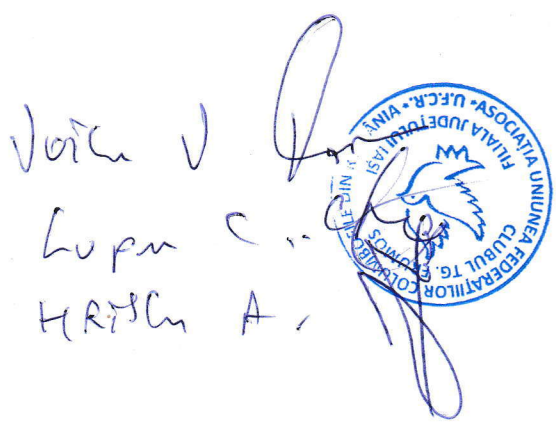 Voicu V
Lupu C.
HRISCU A.
ASOCIAȚIA UNIUNEA FEDERAȚIILOR COLUMBOFILE DIN ROMÂNIA • U.F.C.R. •
FILIALA JUDEȚULUI IAȘI
CLUBUL TG. FRUMOS